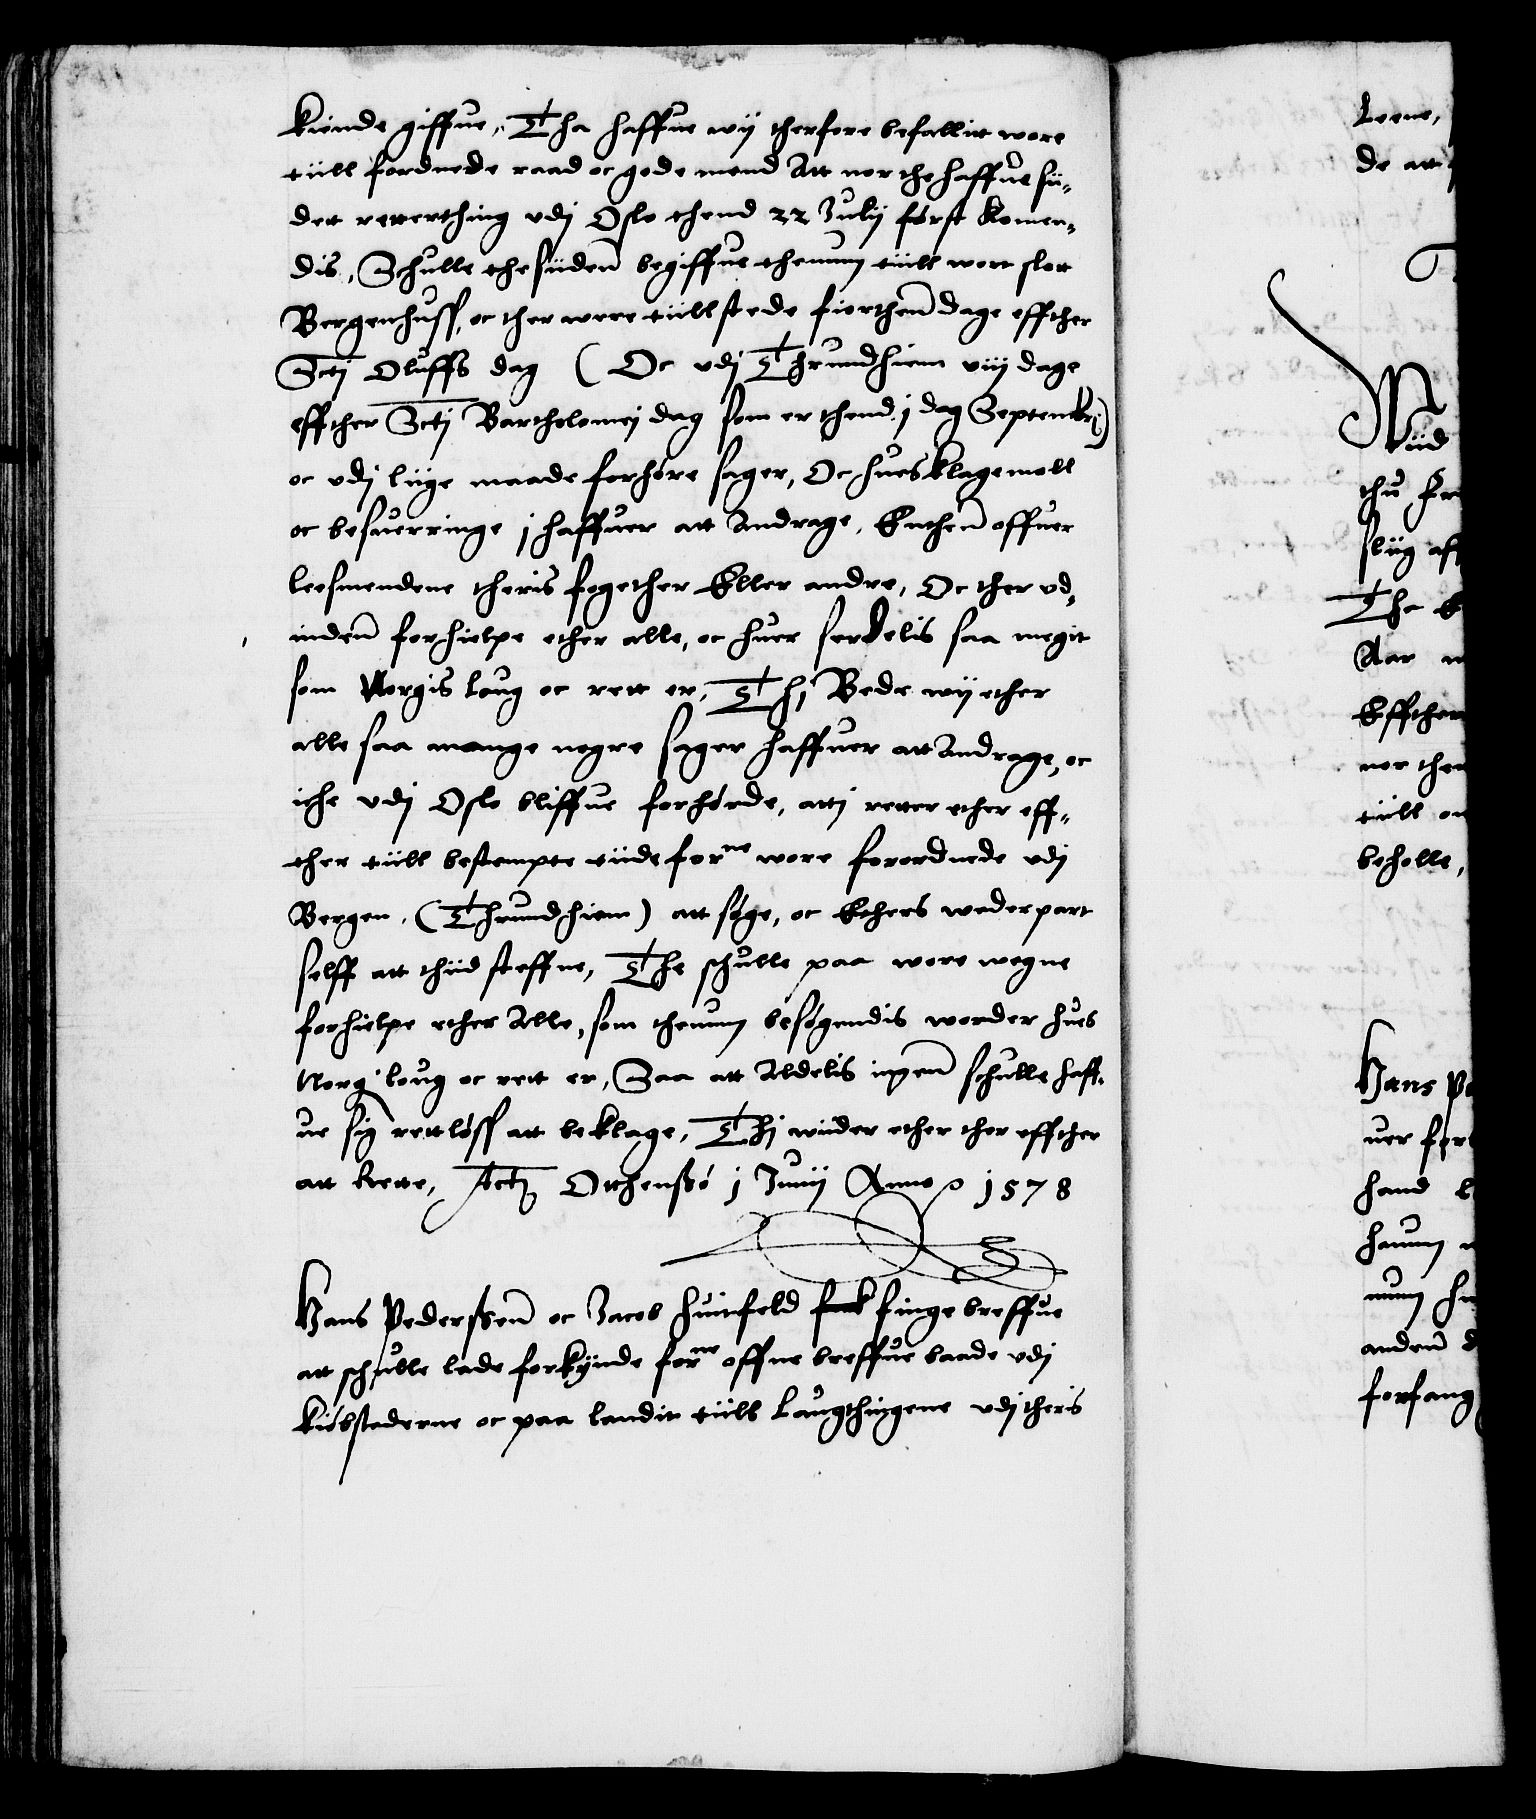 kiende giffue, Tha haffue wij therfore befallitt wore
tiill fordnede raad oc gode mend Att nor the haffue sii-
dett retterthing vdj Oslo thend 22 Julij først komen-
dis, Schulle the siiden begiffue thenum tiill wort slott
Bergenhuss, oc ther were tiillstede fiorthen dage effther
Sctj Oluffs dag (Oc vdj Thrundhiem viij dage
effther Sctj Bartholomej dag som er thend j dag Septembrj)
oc vdj liige maade forhøre sager, Oc hues klagemoll
oc besuerringe j haffuer att Andrage, Enthen offuer
leensmendene theris fogether Eller andre, Oc ther vd-
inden forhielpe ether alle, oc huer serdelis saa megit
som Norgis loug oc rett er, Thj Bede wij ether
alle saa mange nogre sager haffuer att Andrage, oc
iche vdj Oslo bliffue forhørde, att j retter ether eff-
ther tiill bestempte tiide forne wore forordnede vdj
Bergen, (Thrundhiem) att søge, oc Ethers wederpart
selff att thiid steffne, The schulle paa wore wegne
forhielpe ether Alle, som thenum besøgendis worder hues
Norg loug oc rett er, Saa att Aldelis ingen schulle haff-
ue sig rettløss att beklage, Thj wiider ether ther effther
att Rette, Actj Otthensøø j Junij Anno 1578
Hans Pederssen oc Jacob Huitfeld fick finge breffue
att schulle lade forkynde forne offne breffue baade vdj
kiøbstederne oc paa landit tiill Laugthingene vdj theris
Leene,
de att
Wiid
thu
sliig aff
Tha
Aar
Effther
nor then
tiill
beholle,
Hans
uer for
hand
hanum
num
anden
forfang